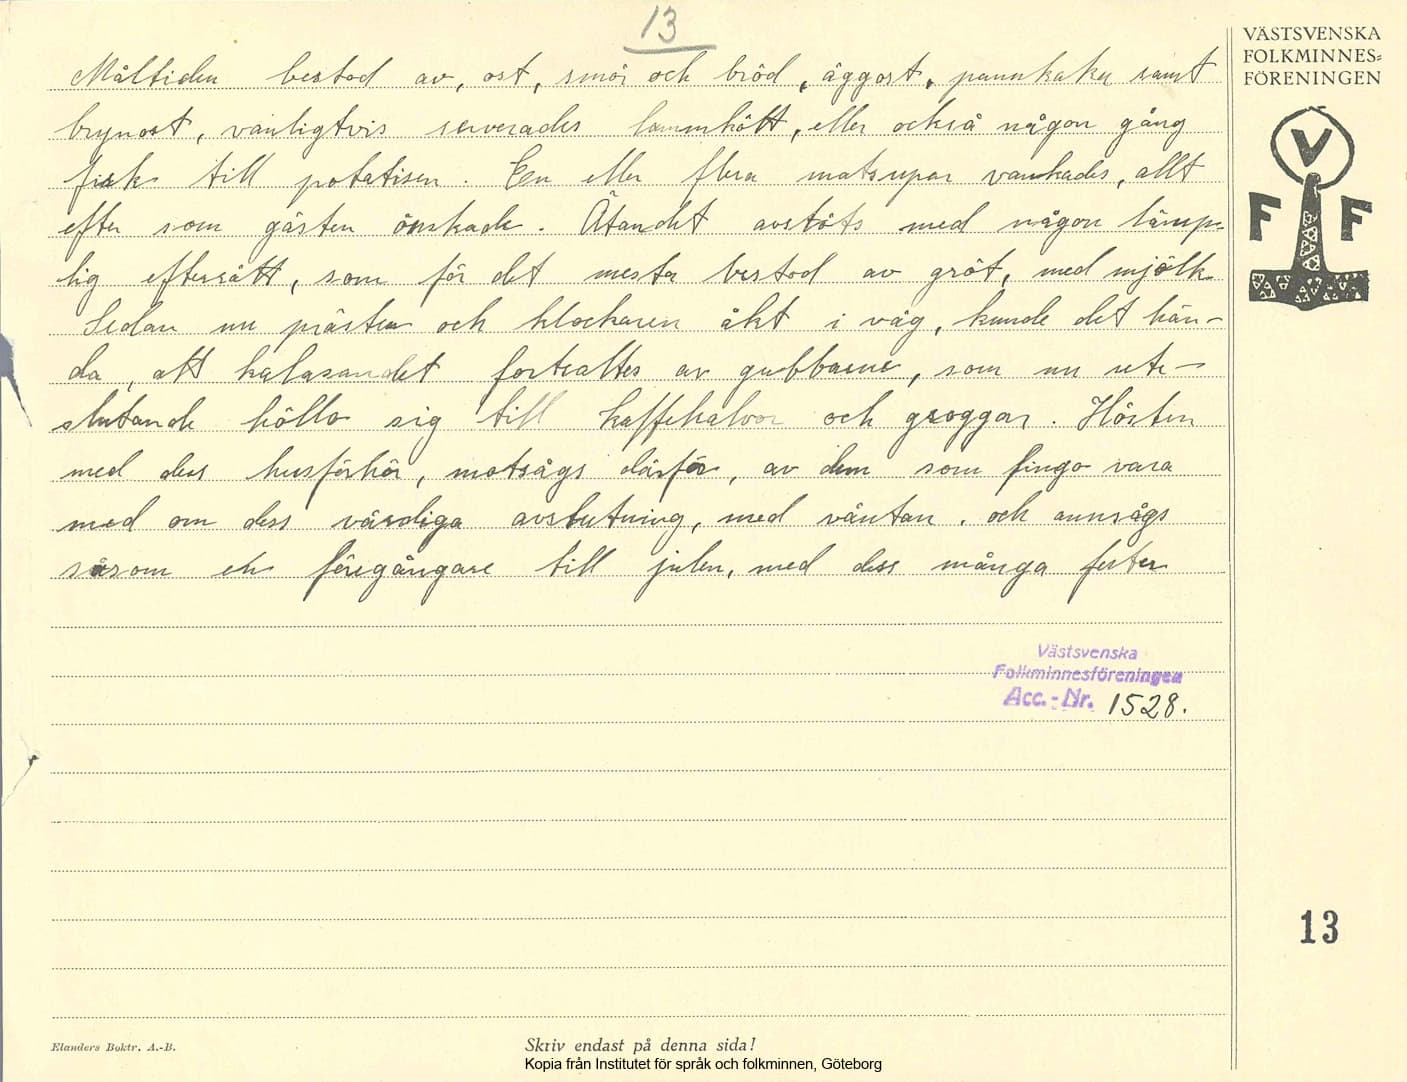 13
VÄSTSVENSKA
FOLKMINNES=
FÖRENINGEN
Måltiden bestod av, ost, smör och bröd, äggost, pannkaka samt
brynost, vanligtvis serverades lammkött, eller också någon gång
fisk till potatisen. En eller flera matsupar vankades, allt
efter som gästen önskade. Ätandet avslöts med någon lämp-
lig efterrätt, som för det mesta bestod av gröt, med mjölk
Sedan nu prästen och klockaren åkt i väg, kunde det hän-
da, att kalasandet fortsattes av gubbarne, som nu ute-
slutande höllo sig till kaffehalvor och groggar. Hösten
med dess husförhör, motsågs därför, av dem som fingo vara
med om dess värdiga avslutning, med väntan, och ansågs
såsom en föregångare till julen, med dess många fester
V
F F
Västsvenska
Folkminnesföreningen
Acc.-Nr. 1528.
13
Elanders Boktr. A.-B.
Skriv endast på denna sida!
Kopia från Institutet för språk och folkminnen, Göteborg